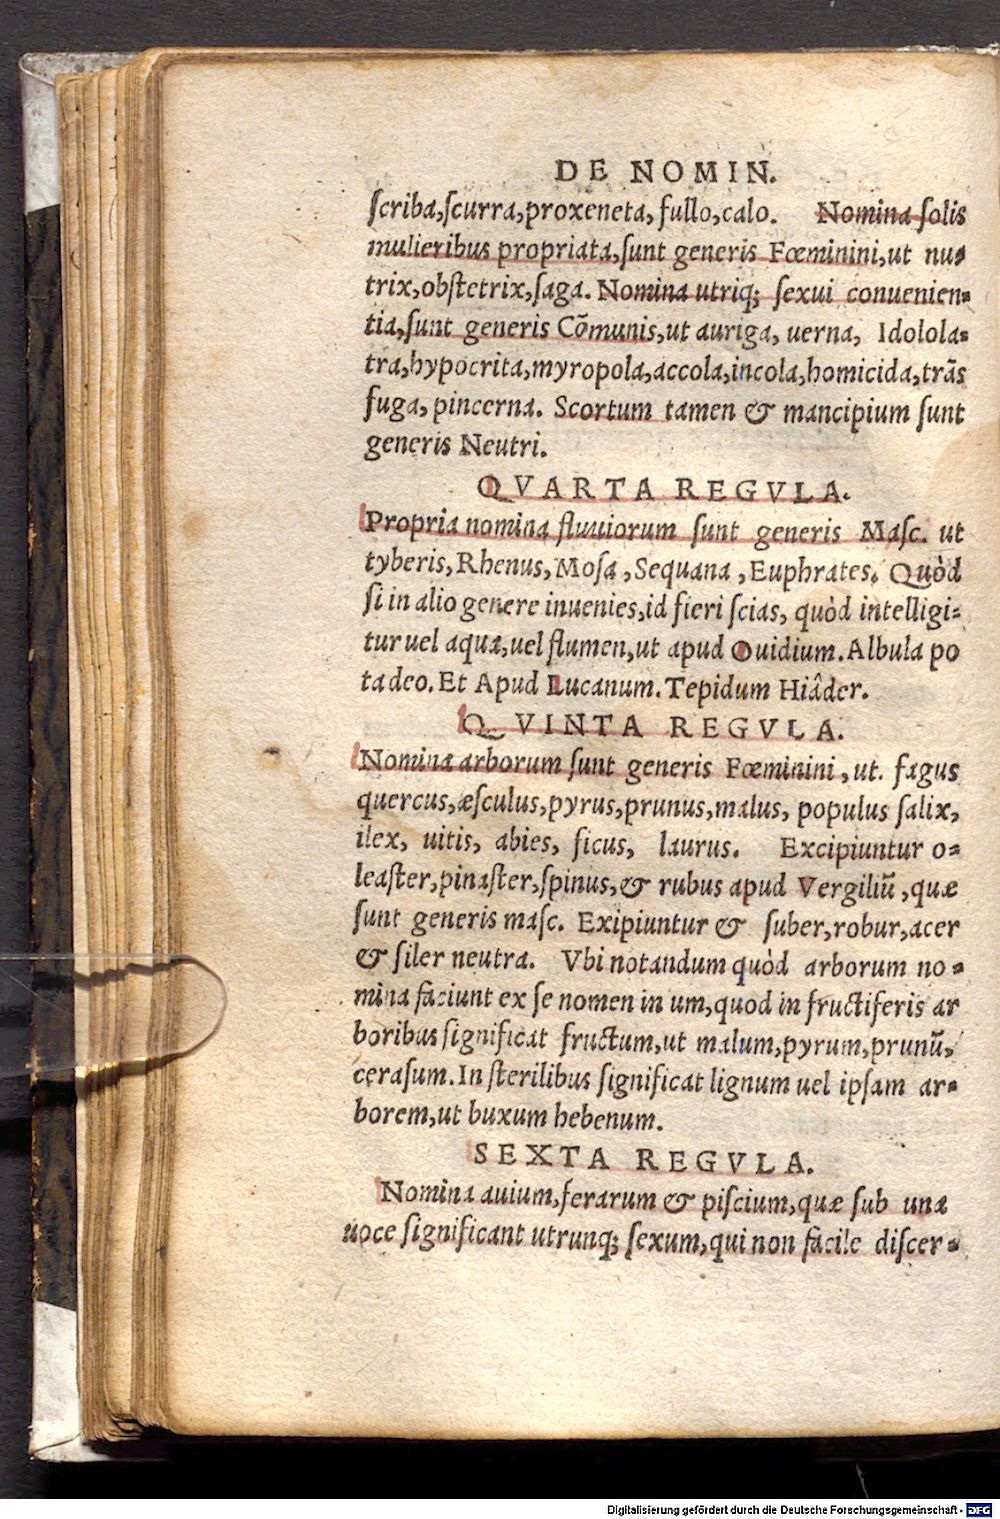 DE NOMIN.
ſcriba,ſcurra,proxeneta, fullo,calo. Nomina ſolis
mulieribus propriata,ſunt generis Fœminini,ut nu-
trix,obſtetrix,ſaga. Nomina utriq; ſexui conuenien-
tia,ſunt generis Cõmunis,ut auriga, uerna, Idolola-
tra,hypocrita,myropola,accola,incola,homicida,trãs
fuga, pincerna. Scortum tamen & mancipium ſunt
generis Neutri.
QVARTA REGVLA.
Propria nomina fluuiorum ſunt generis Maſc. ut
tyberis, Rhenus, Moſa, Sequana, Euphrates. Quòd
ſi in alio genere inuenies,id fieri ſcias, quòd intelligi-
tur uel aqua,uel flumen,ut apud Ouidium. Albula po
ta deo. Et Apud Lucanum. Tepidum Hiâder.
QVINTA REGVLA.
Nomina arborum ſunt generis Fœminini, ut. fagus
quercus,æſculus,pyrus,prunus,malus, populus ſalix,
ilex, uitis, abies, ficus, laurus. Excipiuntur o-
leaſter,pinaſter,ſpinus,& rubus apud Vergiliũ, quæ
ſunt generis maſc. Exipiuntur & ſuber,robur,acer
& ſiler neutra. Vbi notandum quòd arborum no-
mina faciunt ex ſe nomen in um,quod in fructiferis ar
boribus significat fructum,ut malum,pyrum,prunũ,
ceraſum. In ſterilibus ſignificat lignum uel ipſam ar-
borem,ut buxum hebenum.
SEXTA REGVLA.
Nomina auium,ferarum & piſcium,quæ ſub una
uoce ſignificant utrunq; ſexum,qui non facile diſcer-
Digitalisierung gefördert durch die Deutsche Forschungsgemeinschaft - DFG